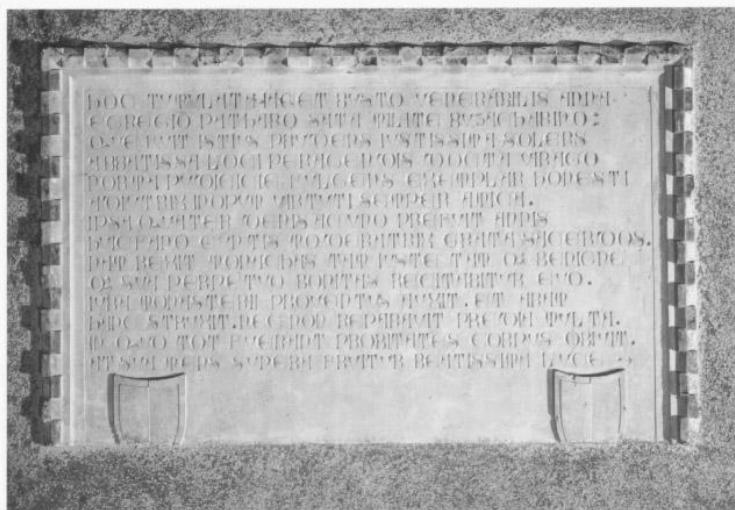 HOC TVMVLATA IACET BVSTO VENERABILIS ANNA·
EGREGIO PATHARO SATA MILITE BVZACHARINO:
QVE FVIT ISTIVS PRVDENS IVSTISSIMA SOLERS
ABBATISSA LOCI PERAGENDIS DOCTA VIRAGO
NORMA PVDICICIE FVLGENS EXEMPLAR HONESTI
ADIVTRIX INOPVM VIRTVTI SEMPER AMICA.
IPSA QVATER DENIS AC VNO PREFVIT ANNIS
HVIC FANO CVNTIS MODERATRIX GRATA SACERDOS.
NAM REXIT MONACHAS TAM IVSTE TAM QZ BENIGNE
QZ SVI PERPETVO BONITAS RECITABITVR EVO.
IVRA MONASTERII PROVENTVS AVXIT. ET ARAM
HANC STRVXIT. NEC NON REPARAVIT PREDIA MVLTA.
IN QVO TOT FVERANT PROBITATES CORPVS OBIVIT.
AT SVA MENS SVPERA FRVITVR BEATISSIMA LVCE